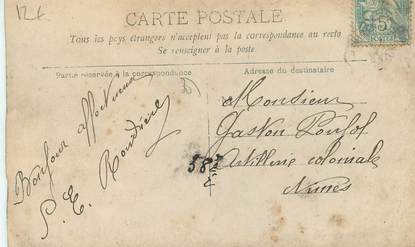 12€
CARTE POSTALE
Tous les pays étrangers n'acceptent pas la correspondance au recto
Se renseigner à la poste
Partie réservée à la correspondance
Adresse du destinataire
Bonjour affectueux
Monsieur
Gaston
Artillerie coloniale
Nimes
5